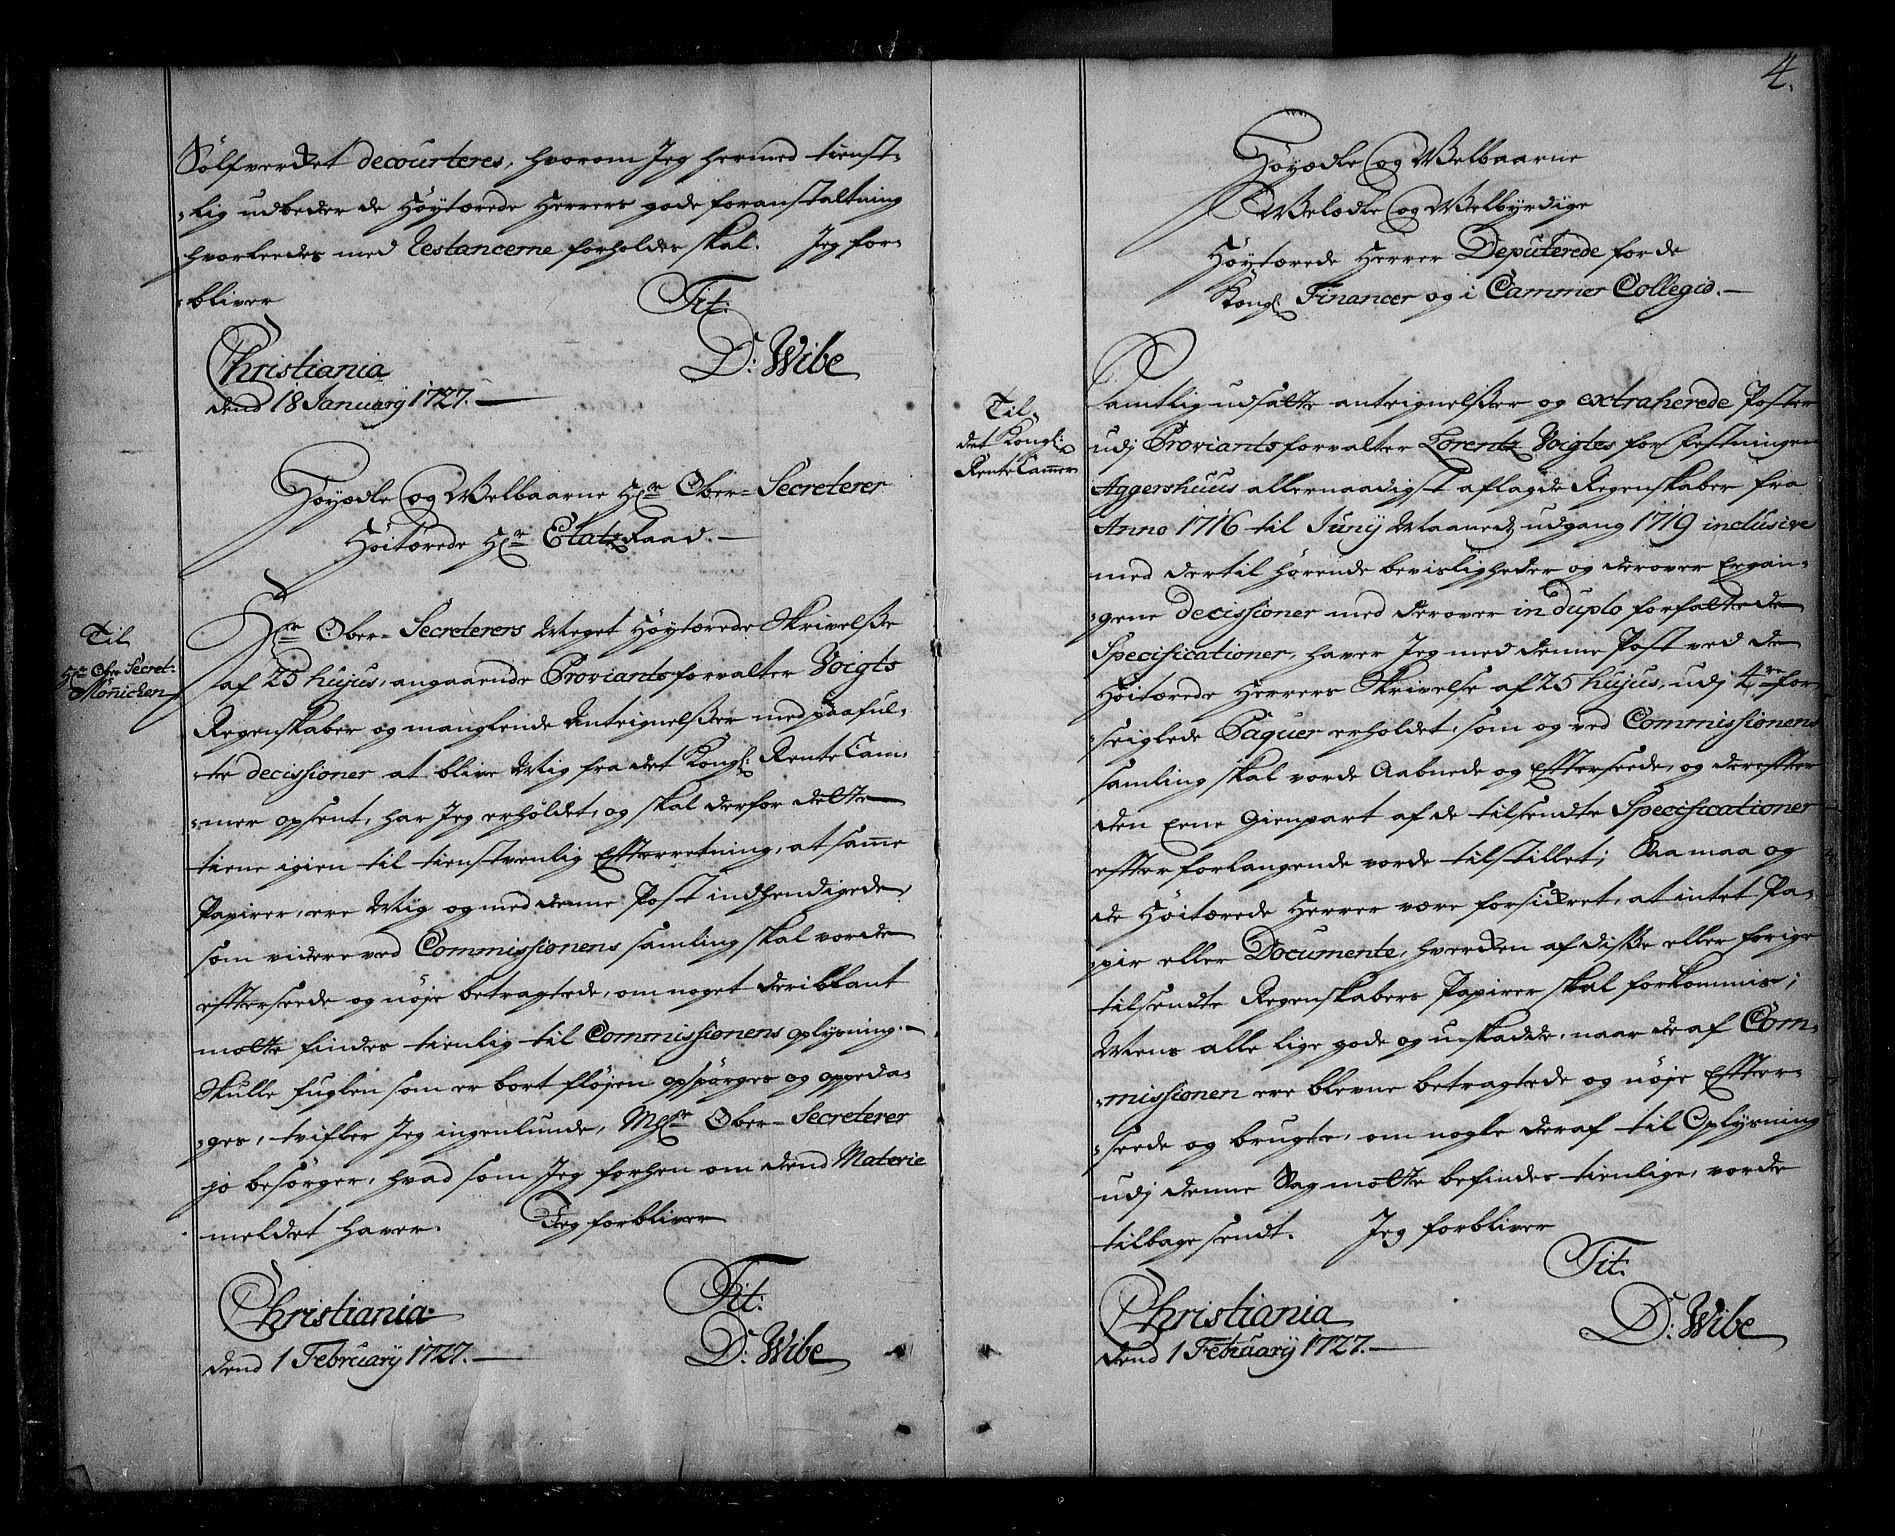 Sølfverket decourteres, hvorom Jeg hermed tienst-
lig udbeder de Høytærede Herrers gode foranstaltning
hvorleedes med Restancerne forholdes skal. Jeg for-
bliver Tit:
D: Wibe
Christiania
dend 18 January 1727.
Høyædle og Welbaarne Hr Ober-Secreterer
Høitærede Hr Etatz Raad.
Til
Hr Ober Secret:
Mөnichen
Hr Ober-Secreterers Meget Høytærede Skrivelsse
af 25 hujus, angaaende Proviantsforvalter Voigts
Regenskaber og manglende Antegnelsser med paaful-
te decissioner at blive Mig fra det Kongl: Rente Cam-
mer opsent, har Jeg erholdet, og skal derfor dette
tiene igien til tienstvenlig Effterretning, at samme
Papirer, ere Mig og med denne Post indhendigede,
som videre ved Commissionens samling skal vorde
effterseede og nøje betragtede, om noget deriblant
motte findes tienlig til Commissionens oplysning.
Skulle fuglen som er bort fløjen opspørges og oppeda-
ges, tvifler Jeg ingenlunde, Mhr Ober-Secreterer
jo besørger, hvad som Jeg forhen om dend Materie
meldet haver. Jeg forbliver
Tit:
D: Wibe
Christiania
dend 1 February 1727.
4.
Høyædle og Welbaarne
Welædle og Welbyrdige
Høytærede Herrer Deputerede for de
Kongl: Financer og i Cammer Collegio.
Til
det Kongl:
Rente Cammer
Samtlig udsatte antegnelsser og extraherede Poster
udj Proviantsforvalter Lorentz Voigtes for Festningen
Aggershuus allernaadigst aflagde Regenskaber fra
Anno 1716 til Junij Maanedz udgang 1719 inclusive
med dertil hørende bevisligheder og derover Ergan-
gene decissioner med derover in duplo forfattede
Specificationer, haver Jeg med denne Post ved de
Høitærede Herrers Skrivelse af 25 hujus, udj 4re for-
seiglede Paquer erholdet, som og ved Commissionens
samling skal vorde Aabnede og Effterseede, og dereffter
den Eene Gienpart af de tilsendte Specificationer
effter forlangende vorde tilstillet; Saa maa og
de Høitærede Herrer være forsickret, at intet Pa-
pir eller Documente, hverken af disse eller forige
tilsendte Regenskabers Papirer skal forkommis;
Mens alle lige gode og uskadde, naar de af Com-
missionen ere blevne betragtede og nøje Effter-
seede og brugte, om nogle deraf til Oplysning
udj denne Sag motte befindes tienlige, vorde
tilbage sendt. Jeg forbliver
Tit:
D: Wibe
Christiania
dend 1 February 1727.